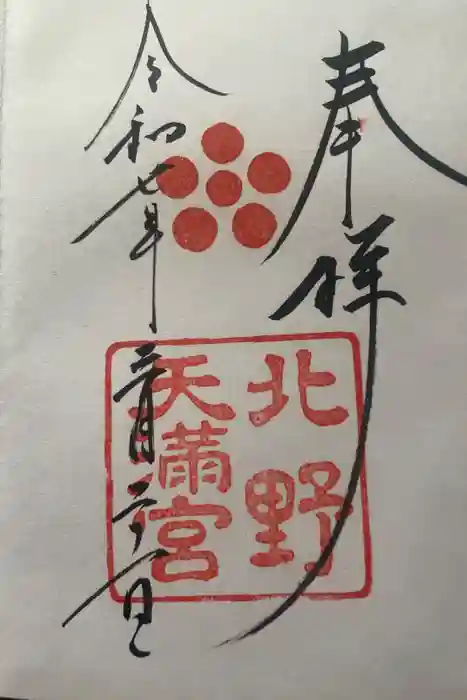 奉拝
北野
天満宮
令和七年 月二十 日